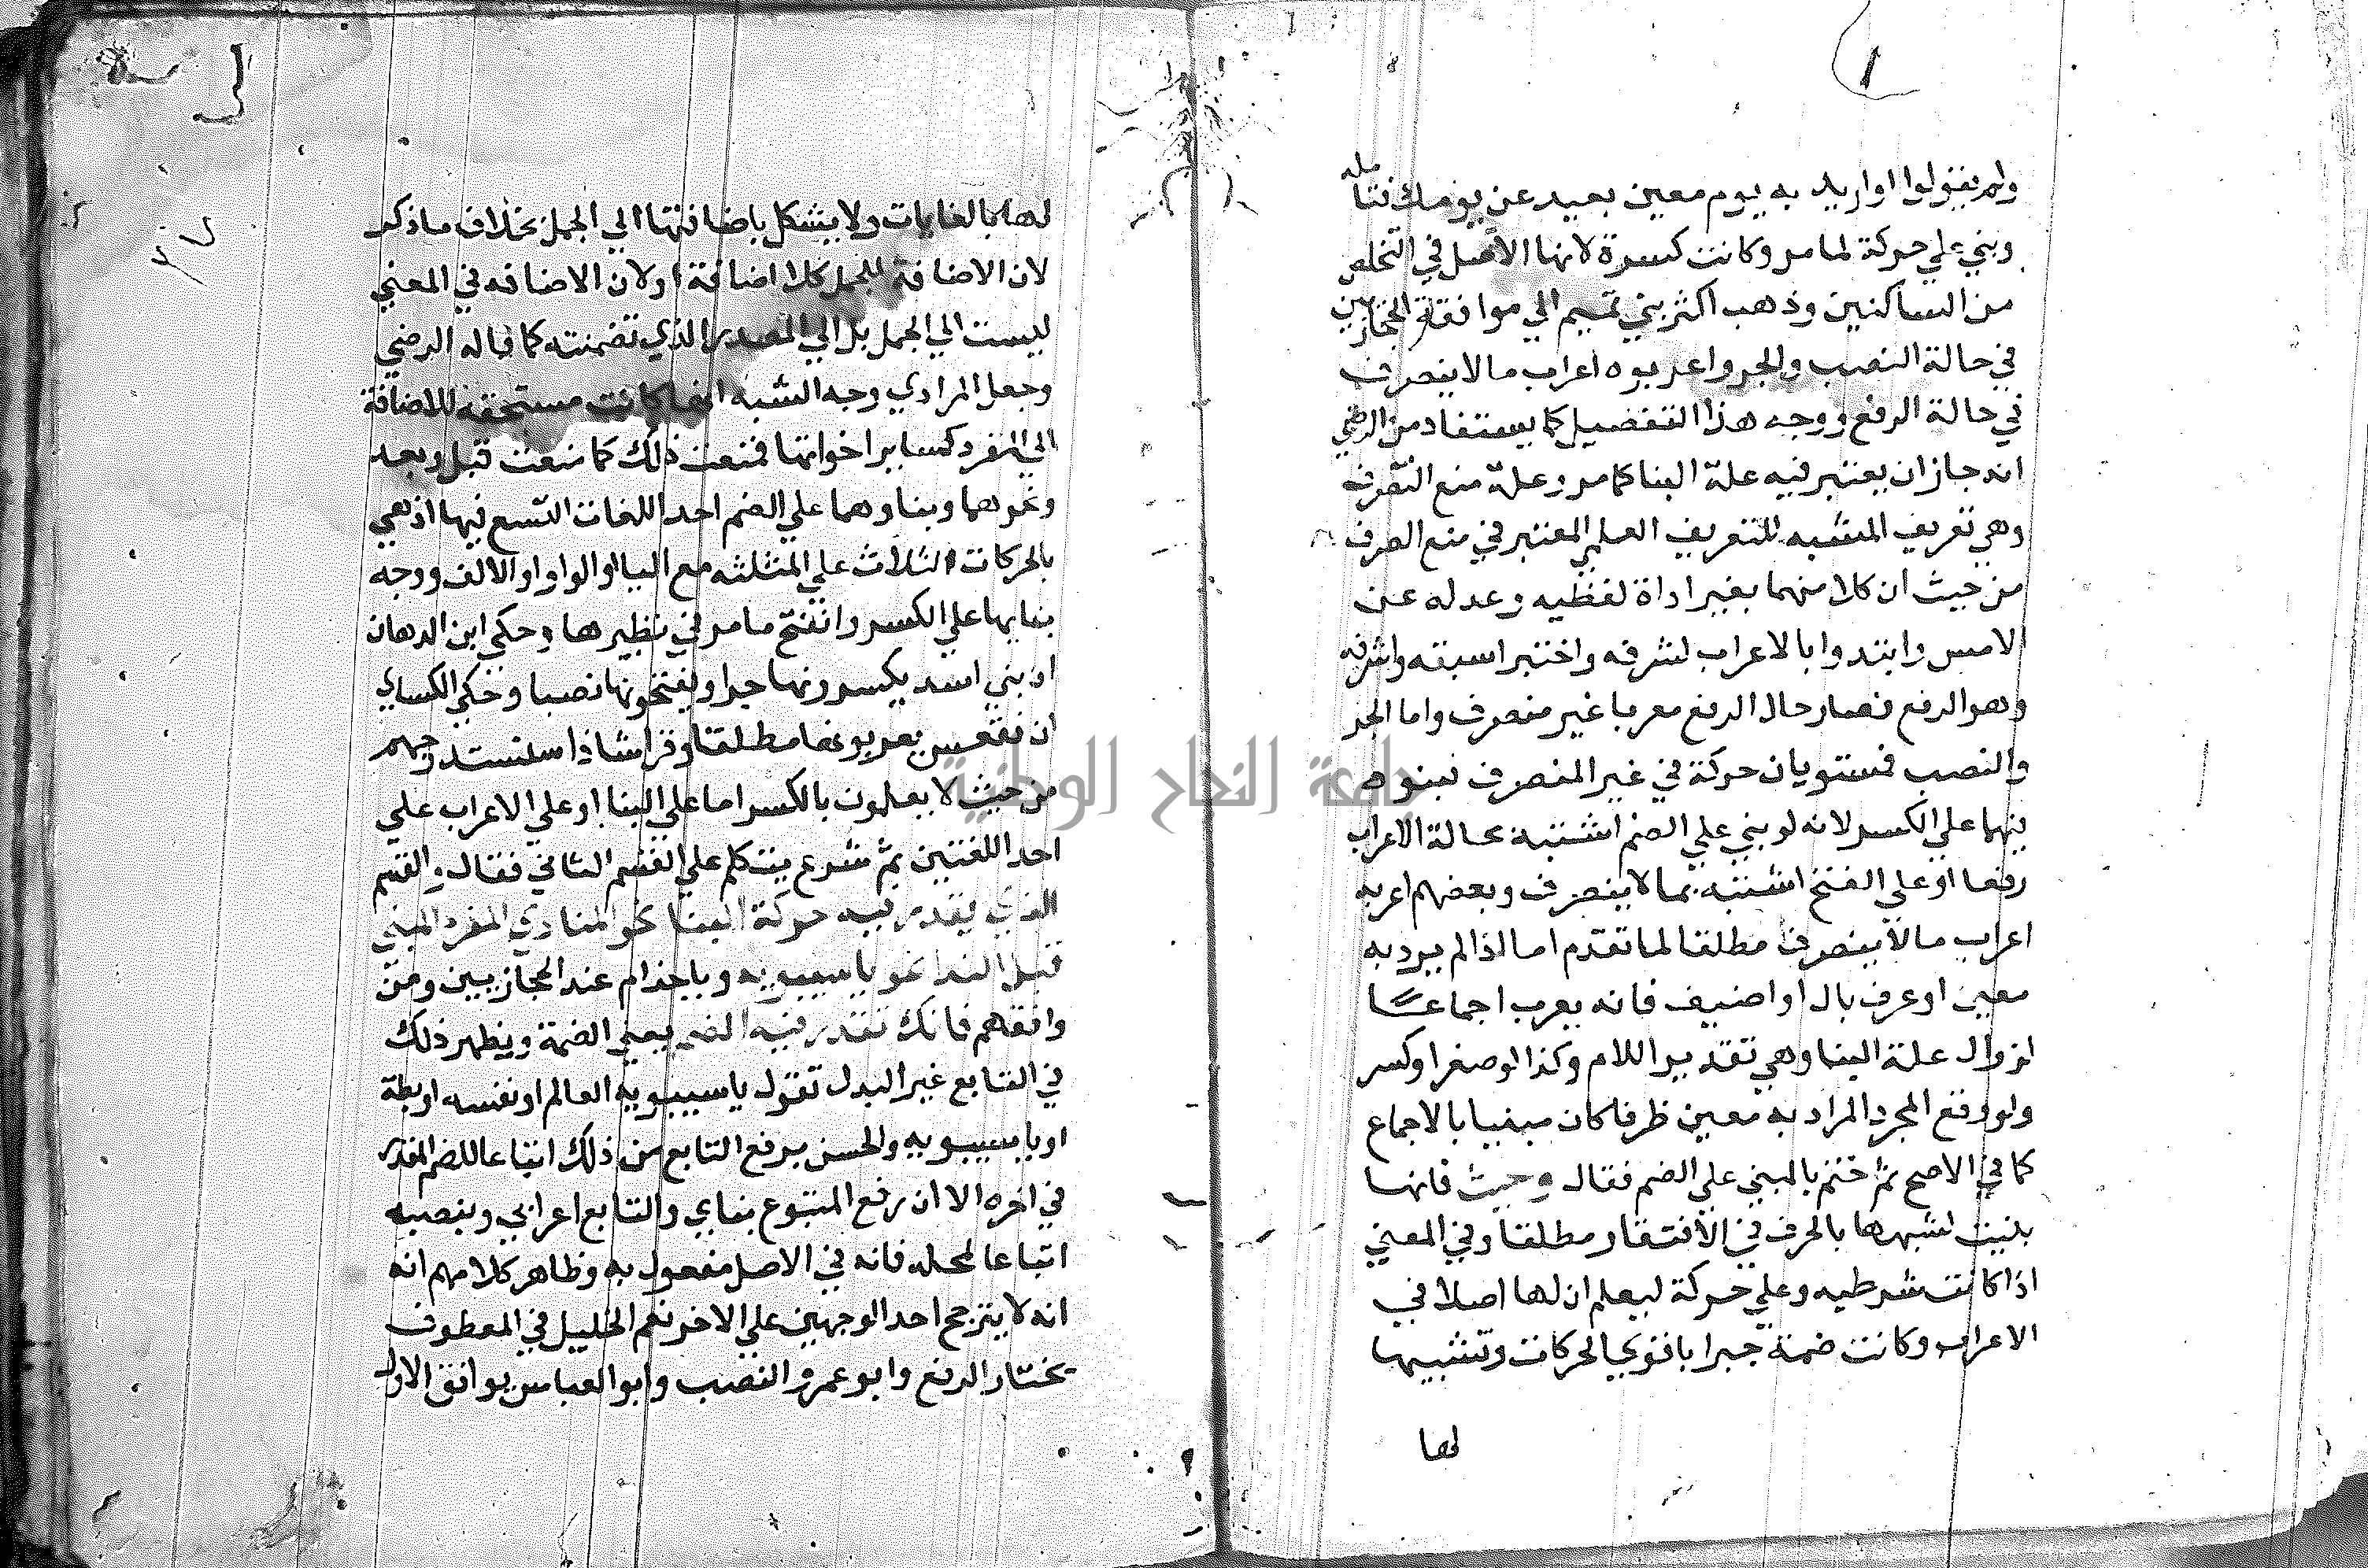 ولم يقولوا او اريد به يوم معين بعيد عن يومك فتامله
وبني علي حركة لما مر وكانت كسرة لانها الاصل في التخلص
من الساكنين وذهب اكثر بني تميم الي موافقة الحجازيين
في حالة النصب والجر واعربوه اعراب ما لا ينصرف
في حالة الرفع ووجه هذا التفصيل كما يستفاد من الرضي
انه جاز ان يعتبر فيه علة البنا كما مر وعلة منع الصرف
وهي تعريف المشبه للتعريف العلمي المعتبر في منع الصرف
من حيث ان كلا منهما بغير اداة لفظيه وعدله عن
الامس وابتدوا بالاعراب لشرفه واختير اسبقه واشرفه
وهو الرفع فصار حال الرفع معربا غير منصرف واما الجر
والنصب فستويان حركة في غير المنصرف فبنوه
فيهما علي الكسر لانه لو بني علي الضم اشتبه بحالة الاعراب
رفعا او علي الفتح اشتبه بما لا ينصرف وبعضهم اعربه
اعراب ما لا ينصرف مطلقا لما تقدم اما اذا لم يرد به
معين او عرف بال او اضيف فانه يعرب اجماعا
لزوال علة البنا وهي تقدير اللام وكذا لو صغر او كسر
ولو وقع المجرد المراد به معين ظرفا كان مبنيا بالاجماع
كما في الاصح ثم ختم بالمبني علي الضم فقال وحيث فانها
بنيت لشبهها بالحرف في الافتقار مطلقا وفي المعني
اذا كانت شرطيه وعلي حركة ليعلم ان لها اصلا في
الاعراب وكانت ضمة جبرا باقوي الحركات وتشبيها
لها
لها بالغايات ولا يشكل باضافتها الي الجمل بخلاف ما ذكر
لان الاضافة للجمل كلا اضافة او لان الاضافه في المعني
ليست الي الجمل بل الي المصدر الذي تضمنته كما قاله الرضي
وجعل المرادي وجه الشبه انها كانت مستحقه للاضافة
الي المفرد كساير اخواتها فمنعت ذلك كما منعت قبل وبعد
ونحوهما وبناوهما علي الضم احد اللغات التسع فيها اذ هي
بالحركات الثلاث علي المثلثه مع اليا او الواو او الالف ووجه
بنايها علي الكسر والفتح ما مر في نظيرها وحكي ابن الدهان
ان بني اسد يكسرونها جرا ويفتحونها نصبا وحكي الكساي
ان فقعس يعربونها مطلقا وقرا شاذا سنستدرجهم
من حيث لا يعلمون بالكسر اما علي البنا او علي الاعراب علي
احد اللغتين ثم شرع يتكلم علي القسم الثاني فقال والقسم
الذي يقدر فيه حركة البنا نحو المنادي المفرد المبني
قبل الندا نحو يا سيبويه ويا حذام عند الحجازيين ومن
وافقهم فانك تقدر فيه الضم يعني الضمة ويظهر ذلك
في التابع غير البدل تقول يا سيبويه العالم او نفسه او بطة
او يا سيبويه والحسن برفع التابع من ذلك اتباعا للضم المقدر
في اخره الا ان رفع المتبوع بناي والتابع اعرابي وبنصبه
اتباعا لمحله فانه في الاصل مفعول به وظاهر كلامهم انه
انه لا يترجح احد الوجهين علي الاخر نعم الخليل في المعطوف
يختار الرفع وابو عمرو النصب وابو العباس يوافق الاول
جامعة النجاح الوطنية